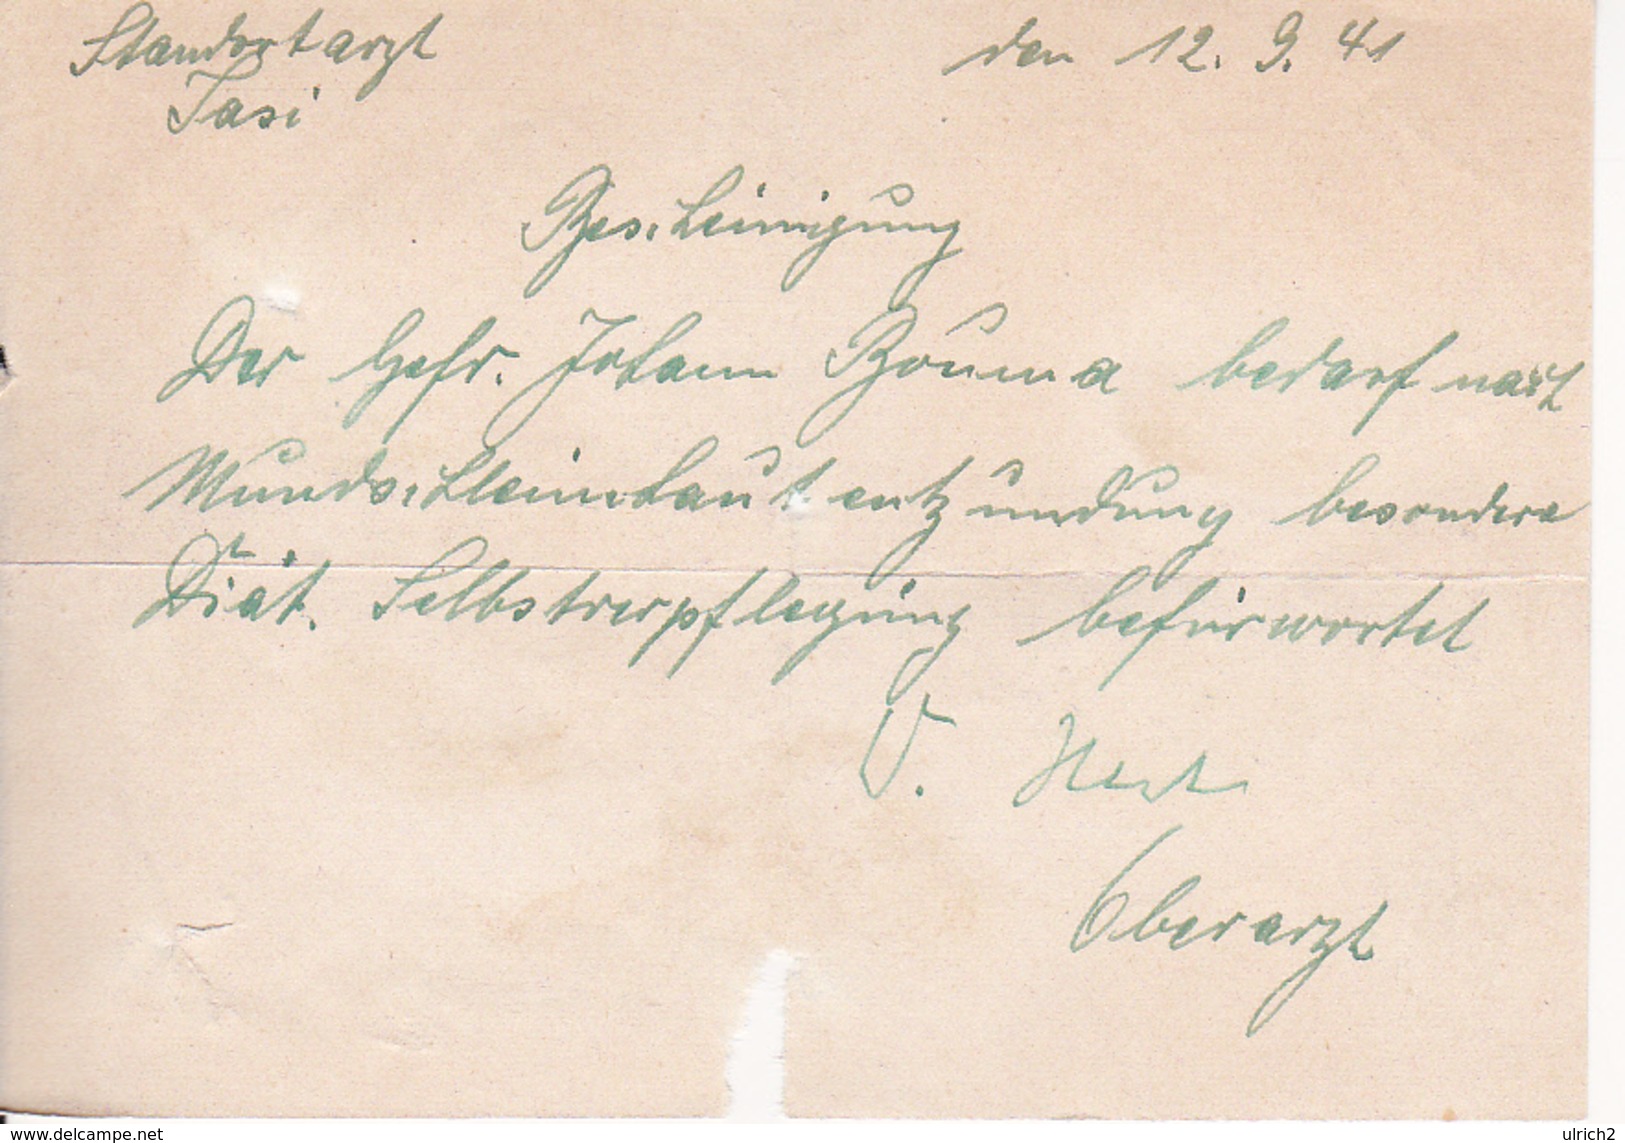 Standortarzt den 12. 9. 41
Jasi
Bescheinigung
Der Gefr. Johann Bouma bedarf nach
Mundschleimhautentzündung besondere
Diät. Selbstverpflegung befürwortet
V.
Oberarzt
www.delcampe.net
ulrich2